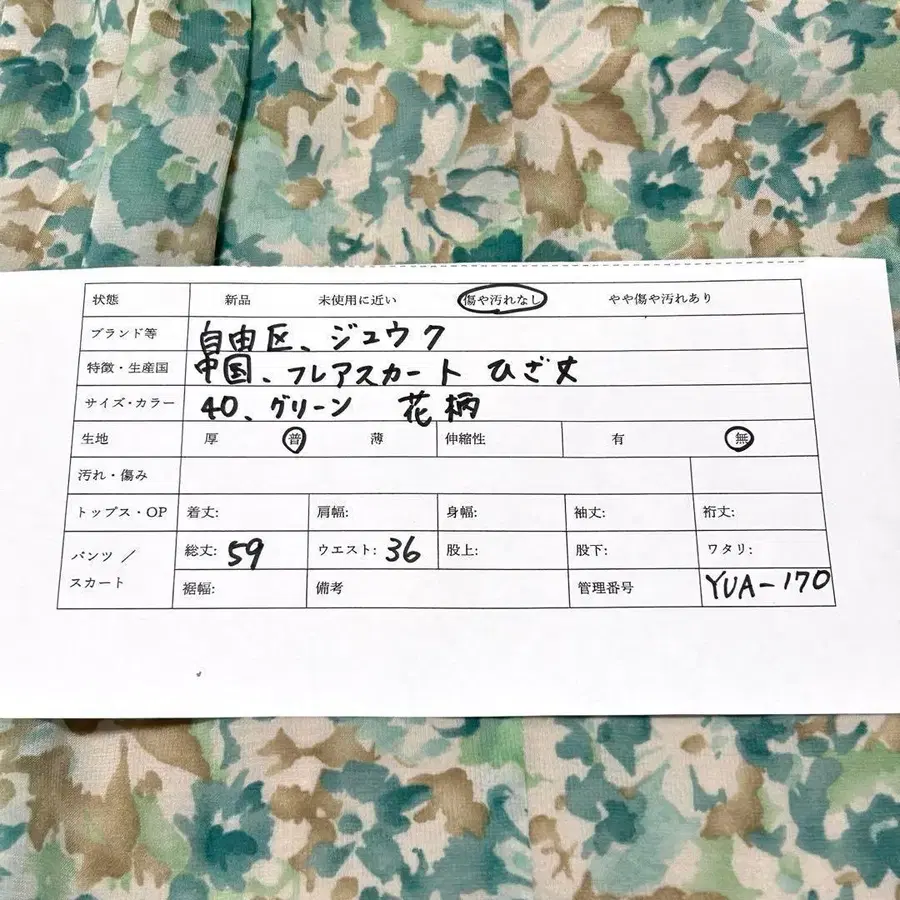 状態 新品 未使用に近い 傷や汚れなし やや傷や汚れあり
ブランド等 自由区、ジユウク
特徴・生産国 中国、フレアスカート ひざ丈
サイズ・カラー 40、グリーン 花柄
生地 厚 普 薄 伸縮性 有 無
汚れ・傷み
トップス・OP 着丈: 肩幅: 身幅: 袖丈: 裄丈:
パンツ / スカート 総丈: 59 ウエスト: 36 股上: 股下: ワタリ:
裾幅: 備考 管理番号 YUA-170